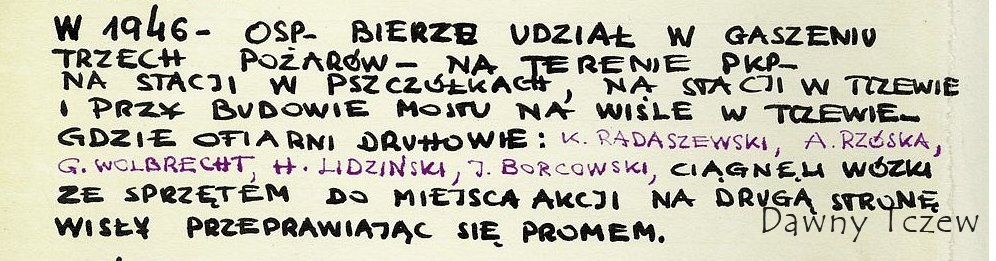 W 1946- OSP- BIERZE UDZIAŁ W GASZENIU
TRZECH POŻARÓW- NA TERENIE PKP-
NA STACJI W PSZCZÓŁKACH, NA STACJI W TCZEWIE
I PRZY BUDOWIE MOSTU NA WIŚLE W TCZEWIE-
GDZIE OFIARNI DRUHOWIE: K. RADASZEWSKI, A. RZÓSKA,
G. WOLBRECHT, H. LIDZIŃSKI, J. BORCOWSKI, CIĄGNĘLI WÓZKI
ZE SPRZĘTEM DO MIEJSCA AKCJI NA DRUGĄ STRONĘ
WISŁY PRZEPRAWIAJĄC SIĘ PROMEM.
Dawny Tczew